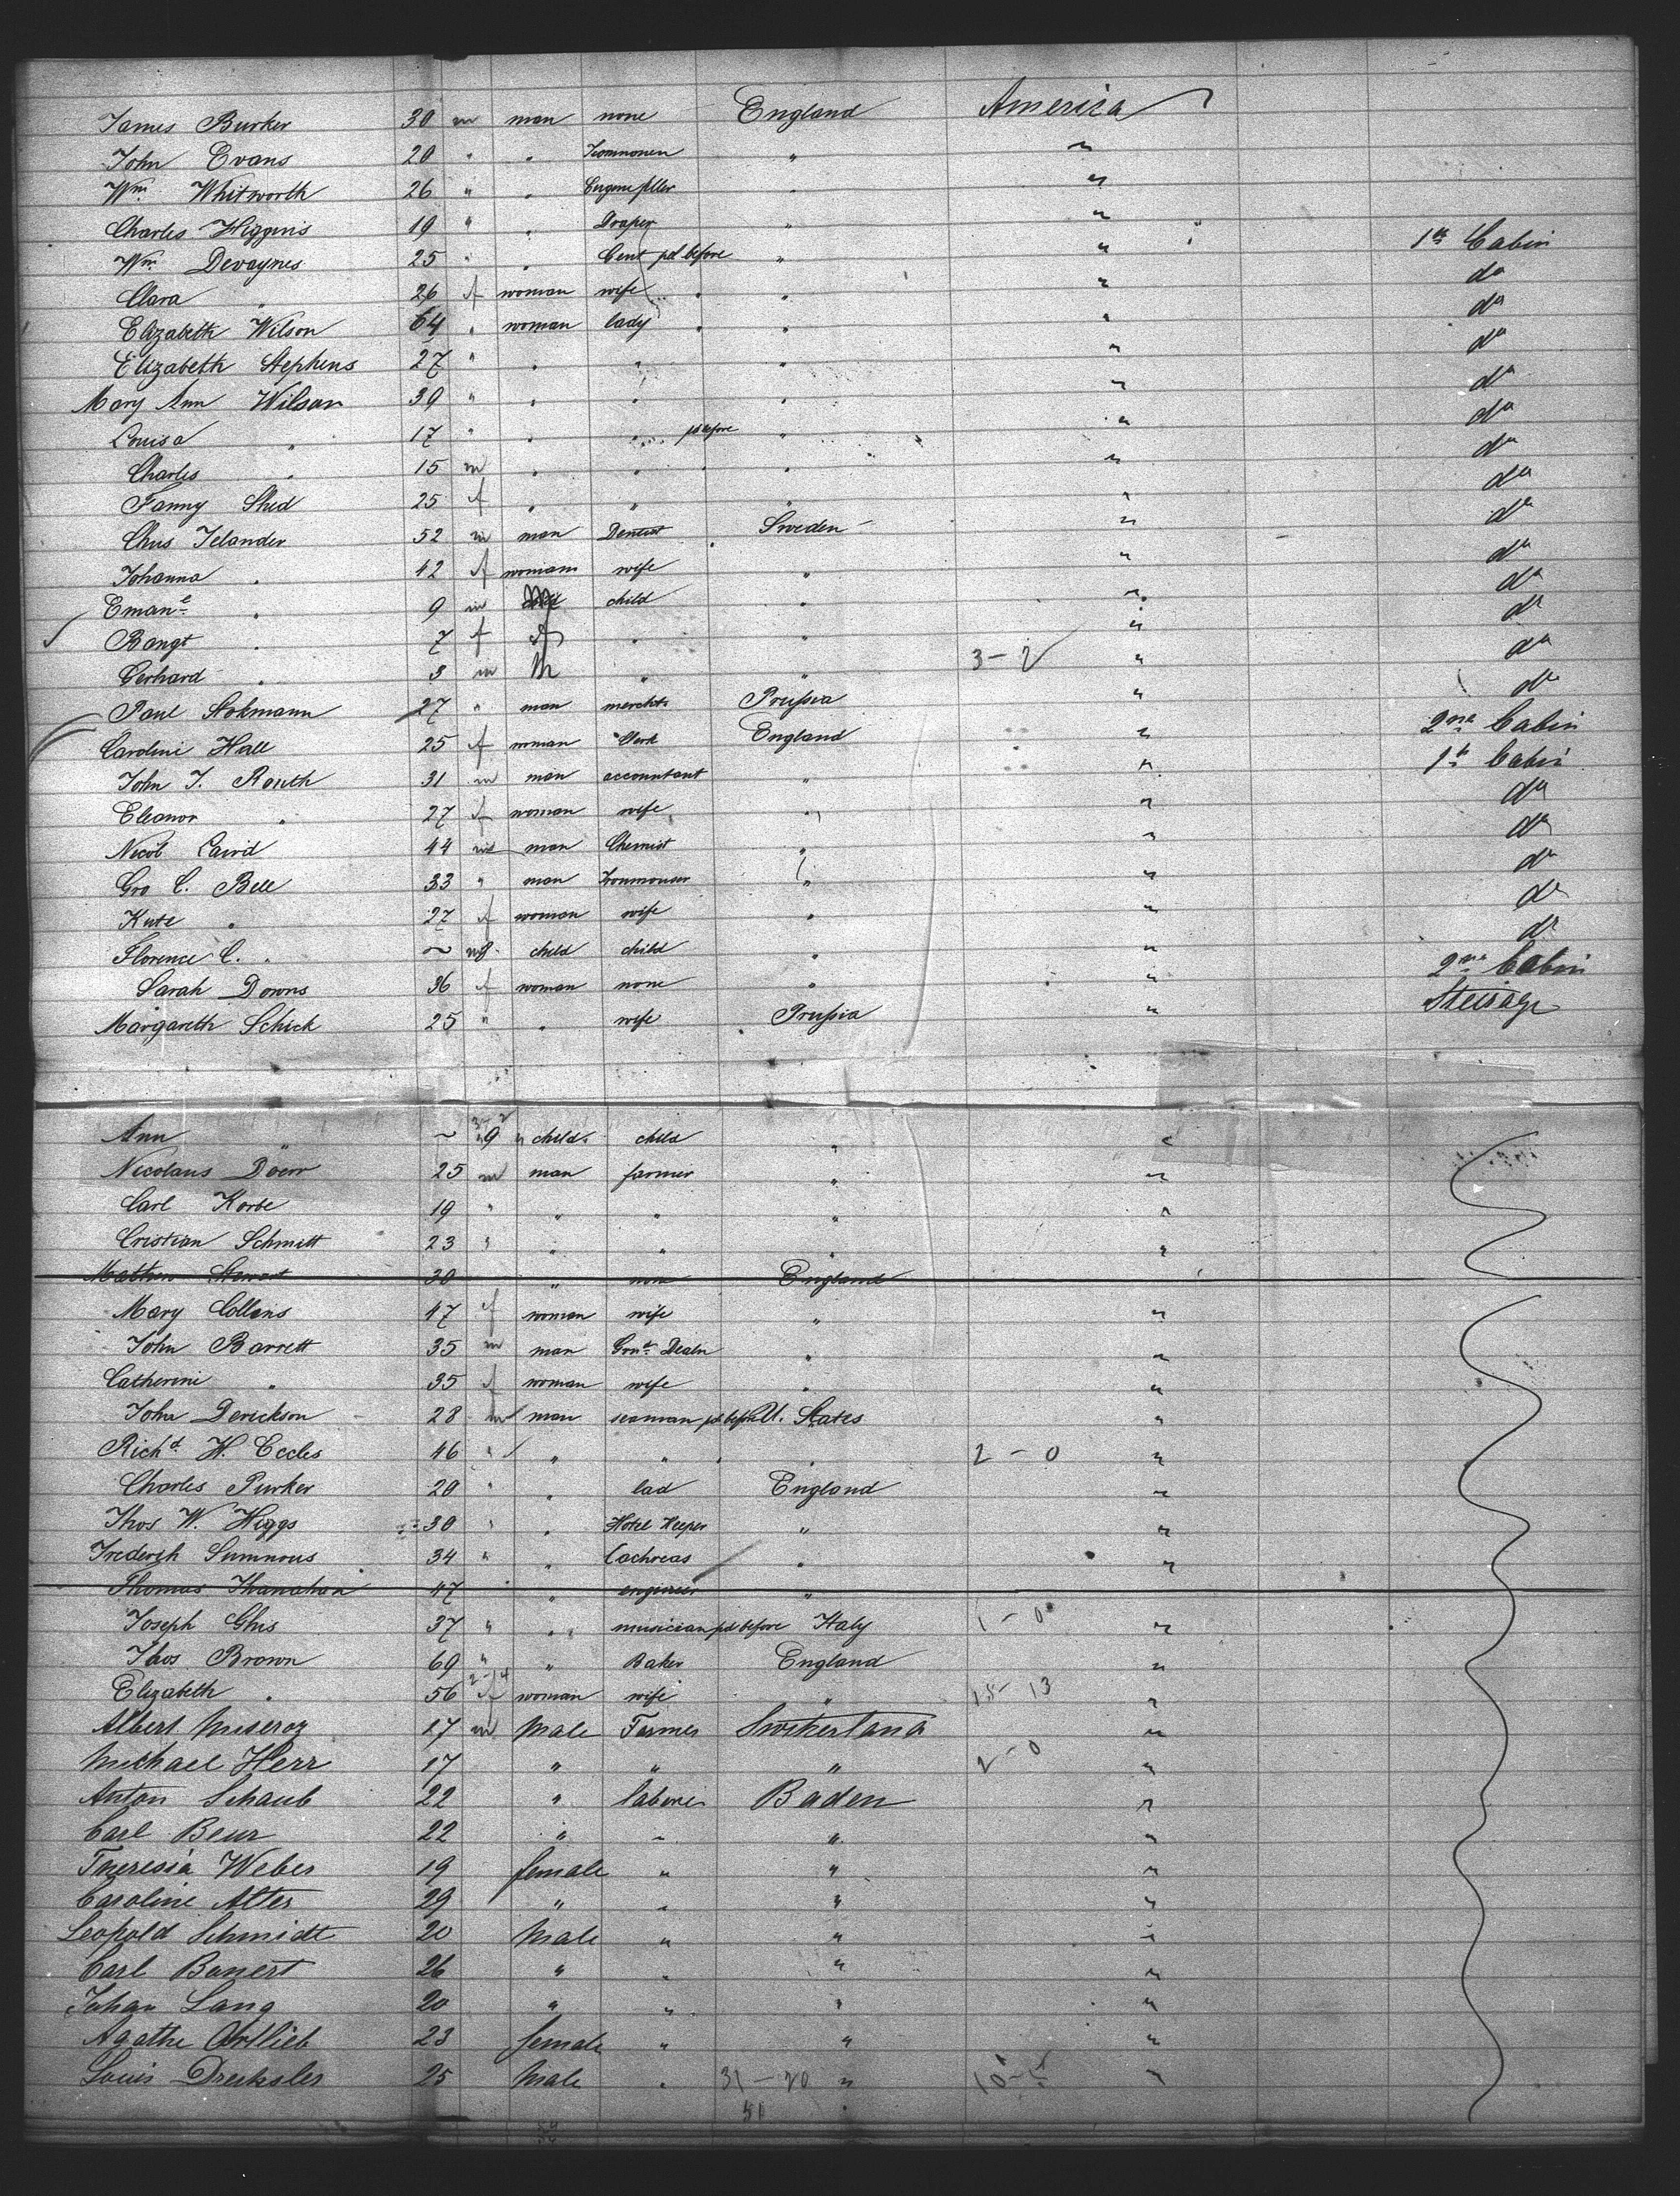 James Burker 30 m man none England America
John Evans 20 " " "  "
Wm. Whitworth 26 " " " "
Charles Higgins 19 " " Draper " "
Wm. Devaynes 25 " " Gent pd before " " 1st Cabin
Clara " 26 f woman wife " " do
Elizabeth Wilson 64 " woman lady " " do
Elizabeth Stephens 27 " " " " " do
Mary Ann Wilson 39 " " " " " do
Louisa " 17 " " " pd before " " do
Charles " 15 m " " " " do
Fanny Shed 25 f " " " " do
Chus Telander 52 m man Dentist Sweden " do
Johanna " 42 f woman wife " " do
Emanl " 9 m child " " do
Bangt " 7 f f " " " do
Gerhard " 3 m M " " 3-2 " do
Paul Stokmann 27 " man merchts Prussia " do
Caroline Hall 25 f woman Clerk England " 2nd Cabin
John T. Routh 31 m man accountant " " 1st Cabin
Eleanor " 27 f woman wife " " do
Nicol Caird 44 m man Chemist " " do
Geo C. Bell 33 " man Ironmonger " " do
Kate " 27 f woman wife " " do
Florence C. " ~ 8 child child " " do
Sarah Downs 36 f woman none " " 2nd Cabin
Margareth Schick 25 " " wife Prussia " Steirage
Ann " ~ 9 " child child " "
Nicolaus Doerr 25 m man farmer " "
Carl Korbe 19 " " " " "
Cristian Schmitt 23 " " " " "
Mathew Stewart 30 " none England
Mary Collens 47 f woman wife " "
John Barrett 35 m man Genl Dealr " "
Catherine " 35 f woman wife " "
John Derickson 28 m man seaman pd before U. States "
Richd. H. Eccles 46 " " " " 2-0 "
Charles Purker 20 " " lad England "
Thos W. Higgs 30 " " Hotel Keeper " "
Frederick 34 " " " "
Thomas 47 " " engineer "
Joseph Ghis 37 " " musician pd before Italy 1-0 "
Thos Brown 69 " " Baker England "
Elizabeth " 56 f woman wife " 15-13 "
Albert Miseroz 17 m Male Farmer Switzerland "
Michael Herr 17 " " " 2-0 "
Anton Schaub 22 " laborer Baden "
Carl Beur 22 " " " "
Theresia Weber 19 female " " "
Caroline Alter 29 " " " "
Leopold Schmidt 20 Male " " "
Carl Banert 26 " " " "
Johan Lang 20 " " " "
Agathe Ortlieb 23 female " " "
Louis Drechsler 25 Male " 31-20 " "